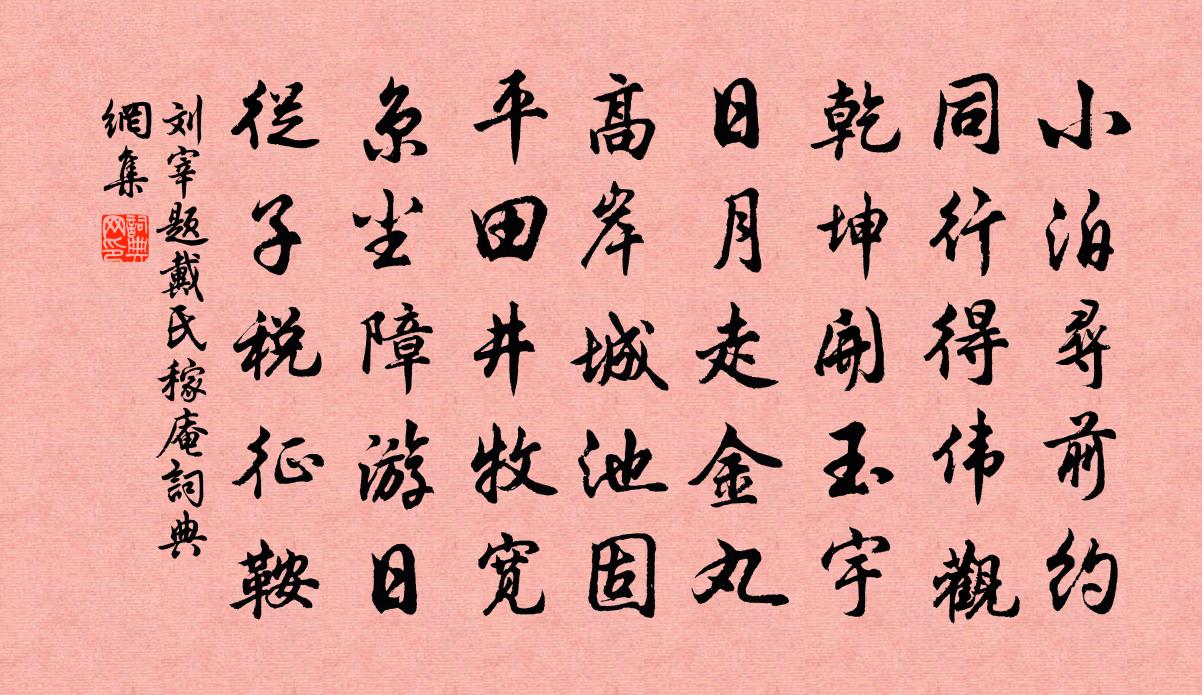 小泊尋前約
同行得伟觀
乾坤開玉宇
日月走金丸
髙岸城池固
平田井牧宽
京尘障游日
従子税征鞍
刘宰题戴氏稼庵詞典
網集
詞典
网印